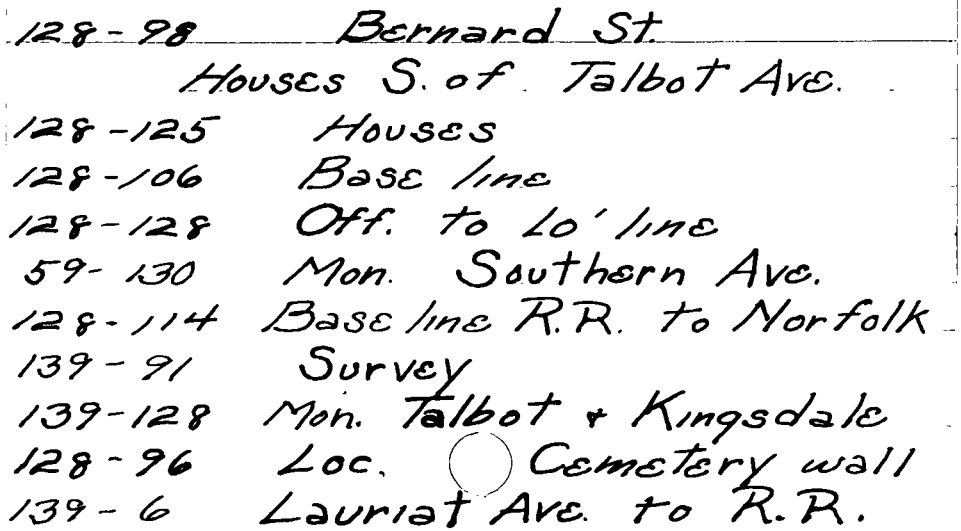 128-98 Bernard St.
Houses S. of Talbot Ave.
128-125 Houses
128-106 Base line
128-128 Off. to 20' line
59-130 Mon. Southern Ave.
128-114 Base line R.R. to Norfolk
139-91 Survey
139-128 Mon. Talbot + Kingsdale
128-96 Loc. Cemetery wall
139-6 Lauriat Ave. to R.R.